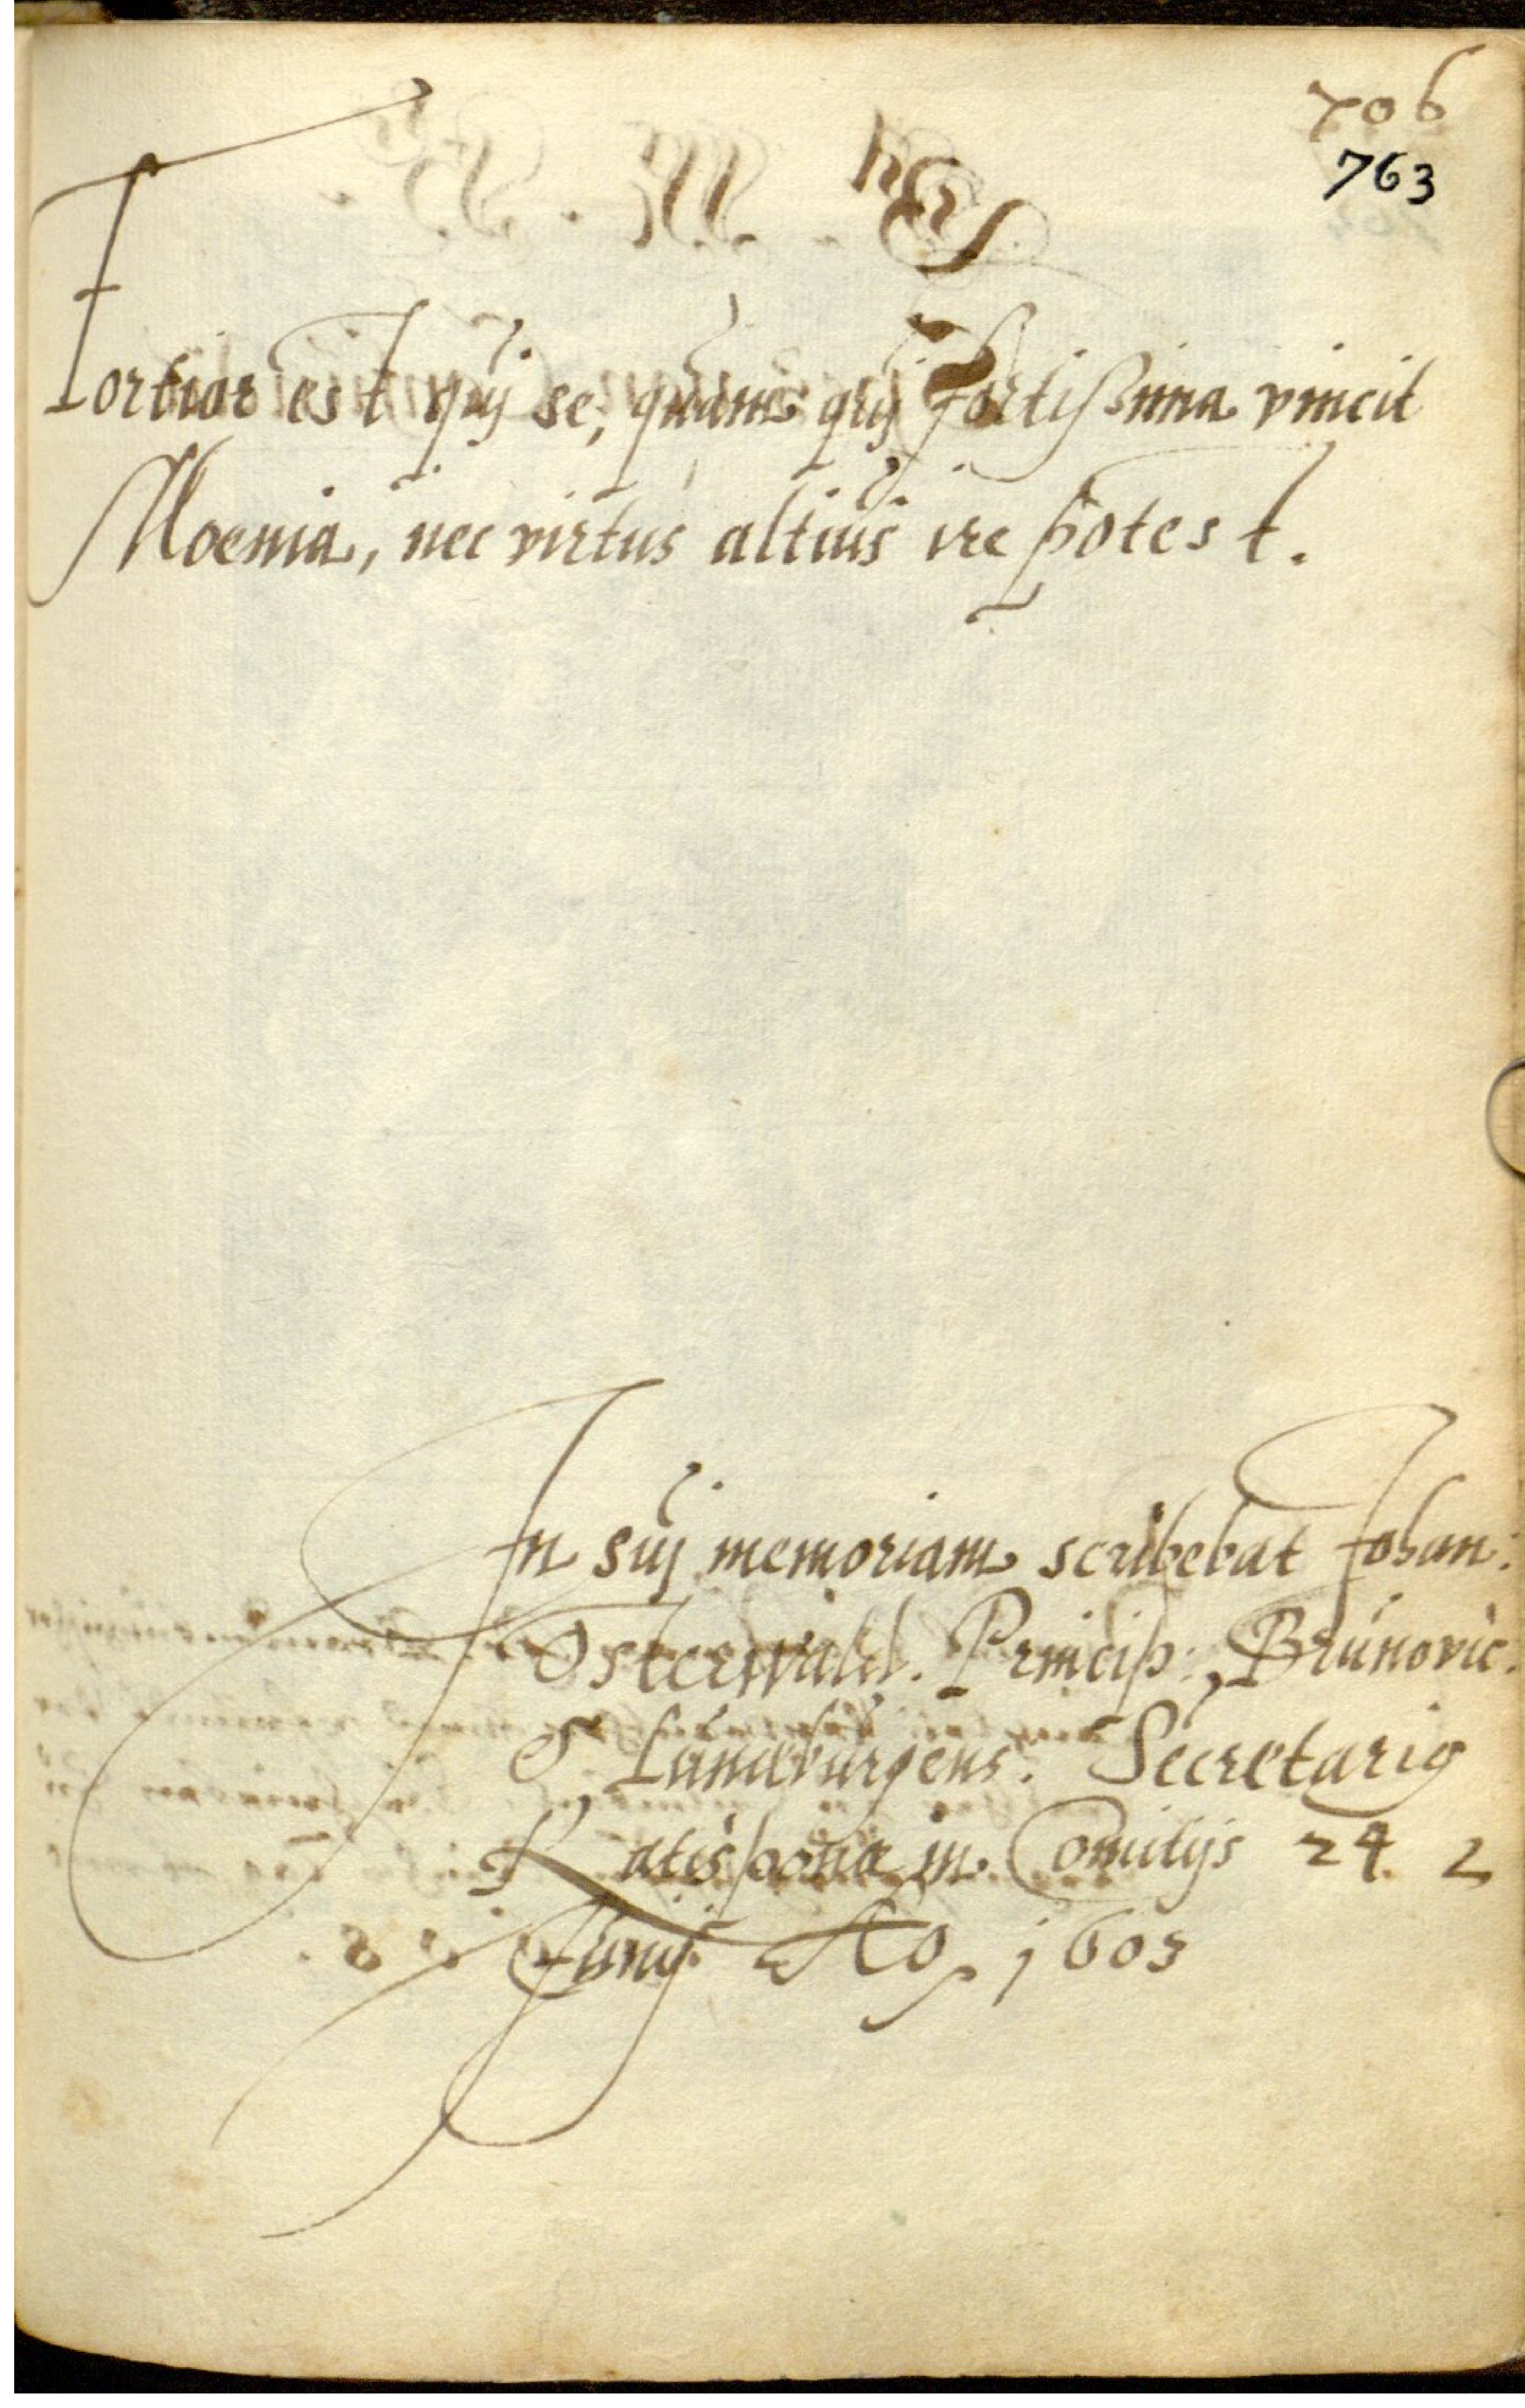 706
763
Fortior est quj se, quam quj fortissima vincit
Moenia, nec virtus altius ire potest.
In suj memoriam scribebat Johan:
Osterwald. Princip: Brunovic.
& Lunæburgens. Secretariꝰ
Ratisponæ in Comitijs 24
Junij Aō 1603